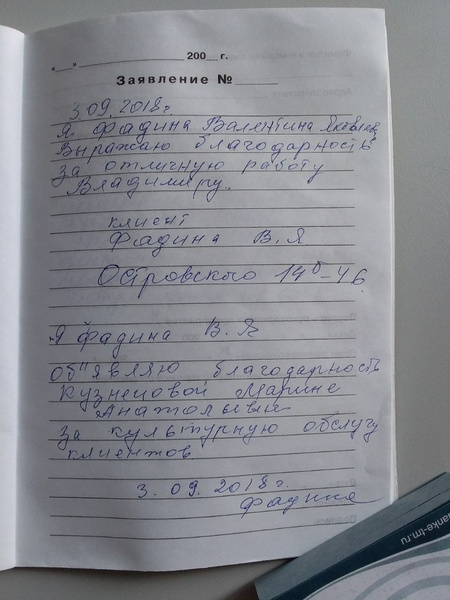 "__"__________ 200__ г.
Заявление №_____
3.09.2018 г
Я Фадина Валентина Яковлев
Выражаю благодарность
за отличную работу
Владимиру.
клиент
Фадина В.Я
Островского 14б-46
Я Фадина В.Я
Об"являю благодарность
Кузнецовой Марине
Анатольевне
за культурную обслугу
клиентов
3.09.2018г.
Фадина
anke-tm.ru